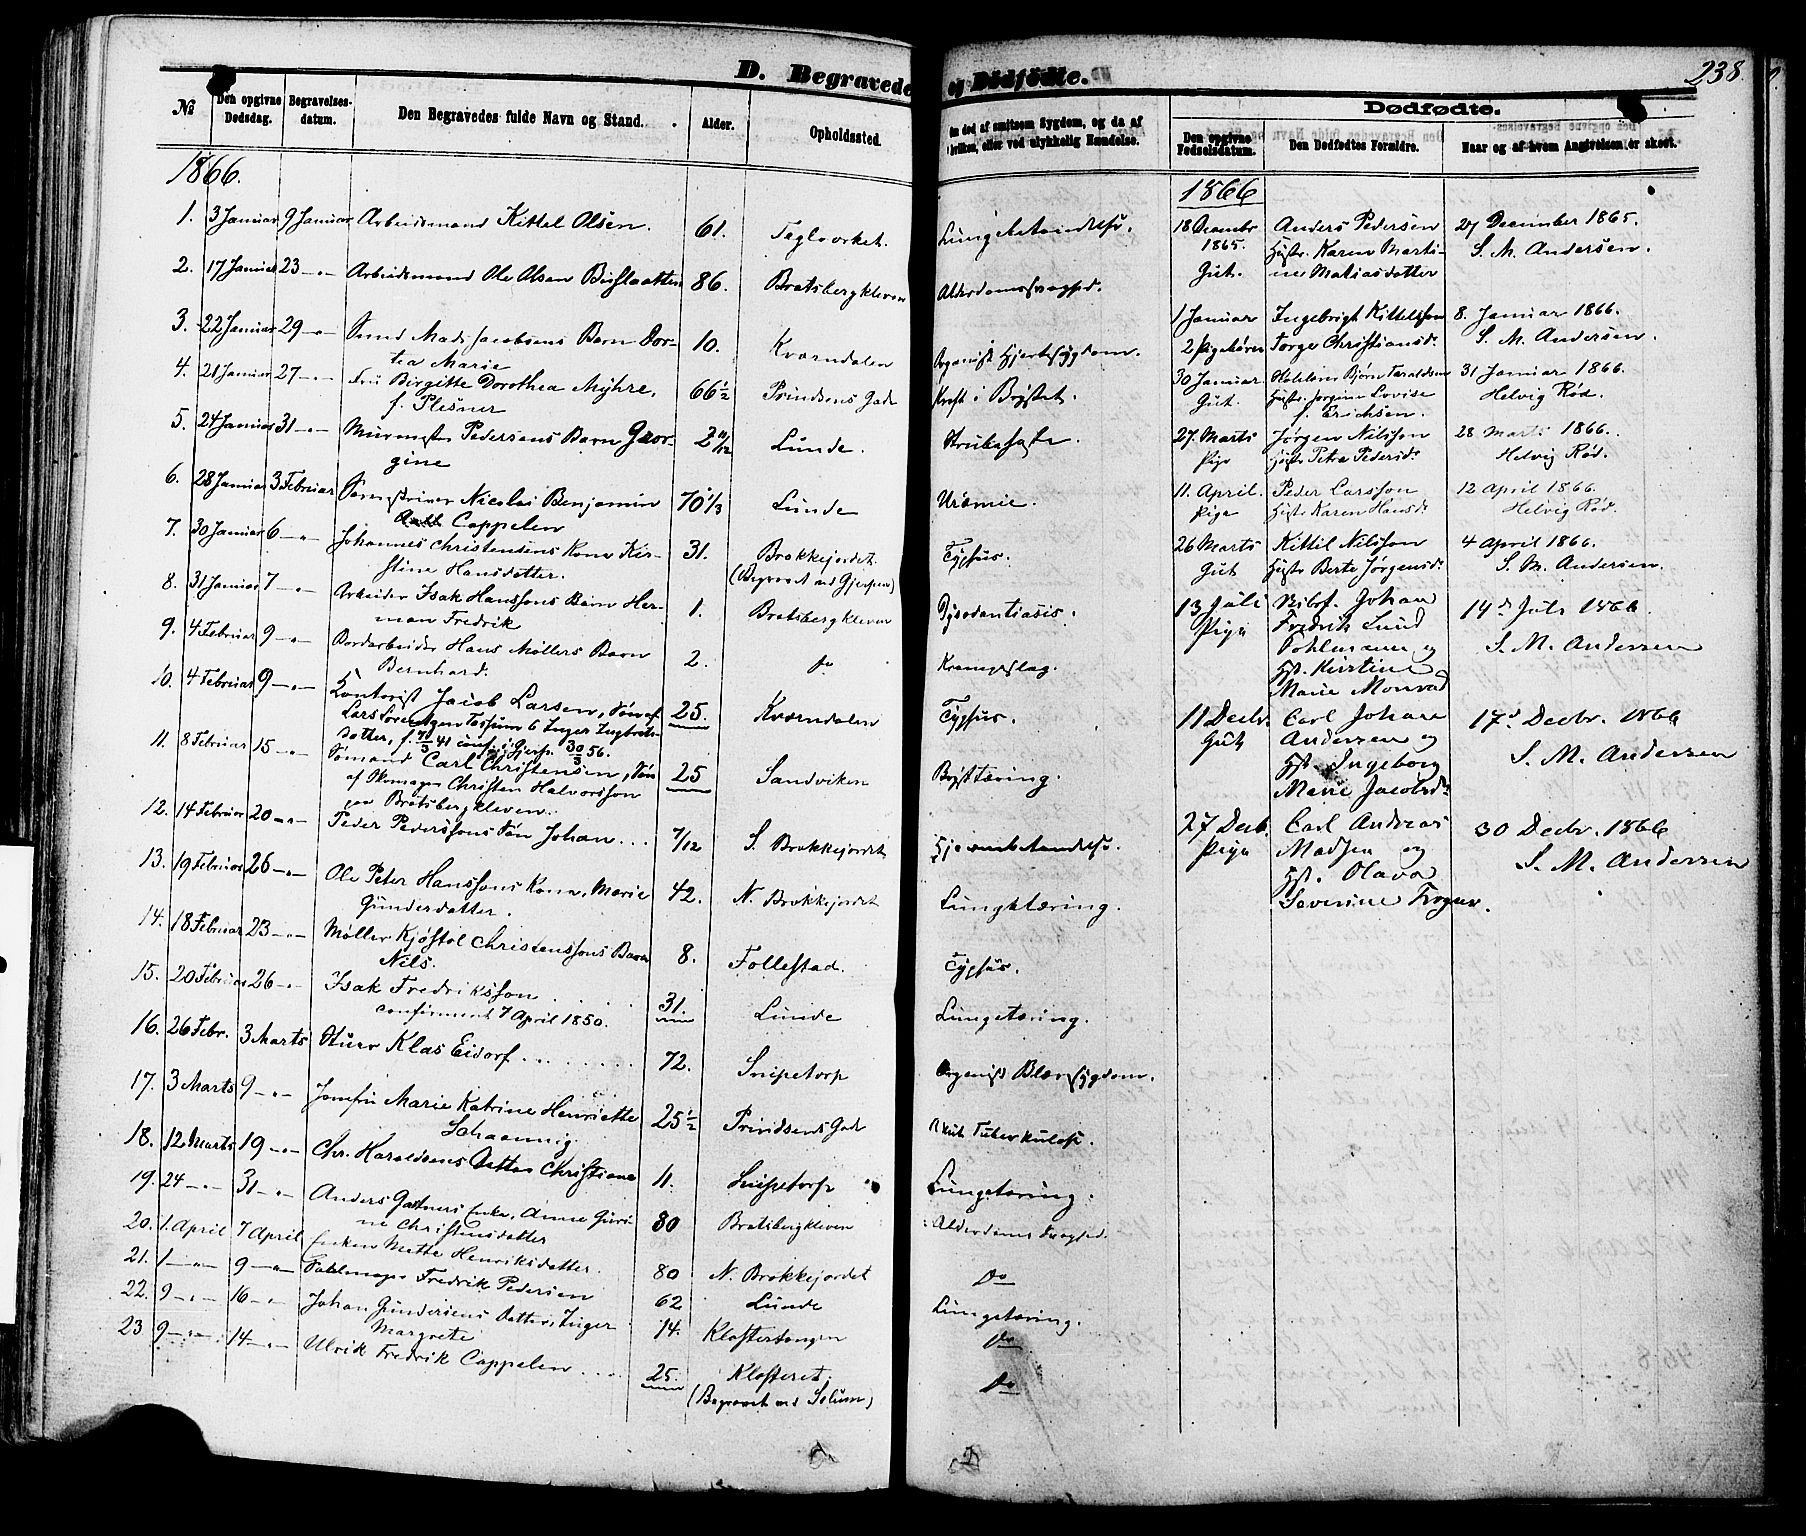 D. Begravede og Dødfødte.
238.
№ Den opgivne Dødsdag. Begravelses-datum. Den Begravedes fulde Navn og Stand. Alder. Opholdssted.
1866.
1. 3 Januar 9 Januar Arbeidsmand Kittel Olsen. 61. Teglverket. Lungebetændelse.
2. 17 Januar 23 -„- Arbeidsmand Ole Olsen 86. Bratsbergkleven Alderdomssvaghed.
3. 22 Januar 29 -„- Smed Mads Jacobsens Barn Dor-
tea Marie 10. Kværndalen Organisk Hjertesygdom.
4. 21 Januar 27 -„- Fru Birgitte Dorothea Myhre,
f. Plesner 66½ Prindsens Gade Kræft i Brystet.
5. 24 Januar 31 -„- Murmester Pedersens Barn Geor-
gine 2 11/12 Lunde. Strubehoste.
6. 28 Januar 3 Februar Sorenskriver Nicolai Benjamin
Aall Cappelen 70 1/3 Lunde Urämie.
7. 30 Januar 6 -„- Johannes Christensens Kone Kir-
stine Hansdatter. 31. Brekkejordet
(Begravet ved Gjerpen) Typhus.
8. 31 Januar 7 -„- Arbeider Isak Hanssons Barn Her-
man Fredrik 1. Bratsbergkleven Dysodantiasis.
9. 4 Februar 9 -„- Bordarbeider Hans Møllers Barn
Bernhard. 2. do Krampeslag.
10. 4 Februar 9 -„- Kontorist Jacob Larsen, Søn af
Lars Sørensen Inger Ingbrets-
datter, f. 41 conf. i Gjerp. 30/3 56. 25. Kværndalen Typhus.
11. 8 Februar 15 -„- Sømand Carl Christensen, Søn
af Skomager Christen Halvorsson
paa Bratsbergkleven. 25 Sandviken Brysttæring.
12. 14 Februar 20 -„- Peder Pederssons Søn Johan... 7/12 S. Brekkejordet Hjernebetændelse.
13. 19 Februar 26 -„- Ole Peter Hanssons Kone, Marie
Gundersdatter. 42. N. Brekkejordet Lungetæring.
14. 18 Februar 23 -„- Møller Kjøstol Christenssons Barn
Nils. 8. Follestad. Typhus.
15. 20 Februar 26 -„- Isak Fredriksson....
confirmeret 7 April 1850. 31. Lunde Lungetæring.
16. 26 Febr. 3 Marts Stuer Klas Eidorf....... 72. Snipetorp Organisk Blæresygdom.
17. 3 Marts 9 -„- Jomfru Marie Katrine Henriette
Schanning. 25½ Prindsens Gade Akut Tuberkulose.
18. 12 Marts 19 -„- Chr. Haroldsens Datter Christiane 11. Snipetorp Lungetæring.
19. 24 -„- 31 -„- Anders Gartners Enke, Anne Guri-
ne Christensdatter 80 Bratsbergkleven Alderdoms Svaghed.
20. 1. April 7 April Enken Mette Henriksdatter. 80 N. Brekkejordet Do
21. 1 -„- 9 -„- Fredrik Pedersen 62 Lunde Lungetæring.
22. 9 -„- 16 -„- Johan Gundersens Datter, Inger
Margrete 14. Klostertangen Do
23 9 -„- 14 -„- Ulrik Fredrik Cappelen .... 25. Klosteret.
(Begravet ved Solum) Do
Om død af smitsom Sygdom, og da af hvilken, eller ved ulykkelig Hændelse.
Dødfødte.
Den opgivne Fødselsdatum. Den Dødfødtes Forældre. Naar og af hvem Angivelsen er skeet.
1866
18 Decembr
1865.
Gut. Anders Pedersen
Hustr. Karen Marti-
ne Matiasdatter 27 December 1865.
S. M. Andersen.
1 Januar
2 Pigebørn Ingebrigt Kittelsson
Torge Christiansd. 8. Januar 1866.
S. M. Andersen.
30 Januar
Gut. Bjørn Taraldsen
Hustr. Jørgine Lovise
f. Erichsen. 31 Januar 1866.
Helvig Rød.
27. Marts
Pige Jørgen Nilsson
Hustr Petra Pedersd. 28 Marts 1866.
Helvig Rød.
11. April.
Pige Peder Larsson
Hustr Karen Hansd. 12 April 1866.
Helvig Rød.
26 Marts
Gut Kittil Nilsson
Hustr Berte Jørgensd. 4 April 1866.
S. M. Andersen.
13 Juli
Pige Johan
Fredrik Lund
Pohlmann og
Hst. Kirstine
Marie Monrad 14d Juli 1866
S. M. Andersen
11 Decbr.
Gut Carl Johan
Andersen og
Hst. Ingeborg
Marie Jacobsd. 17d Decbr. 1866
S. M. Andersen
27 Decb.
Pige Carl Andreas
Madsen og
Hst. Olava
Severine 30 Decbr. 1866
S. M. Andersen